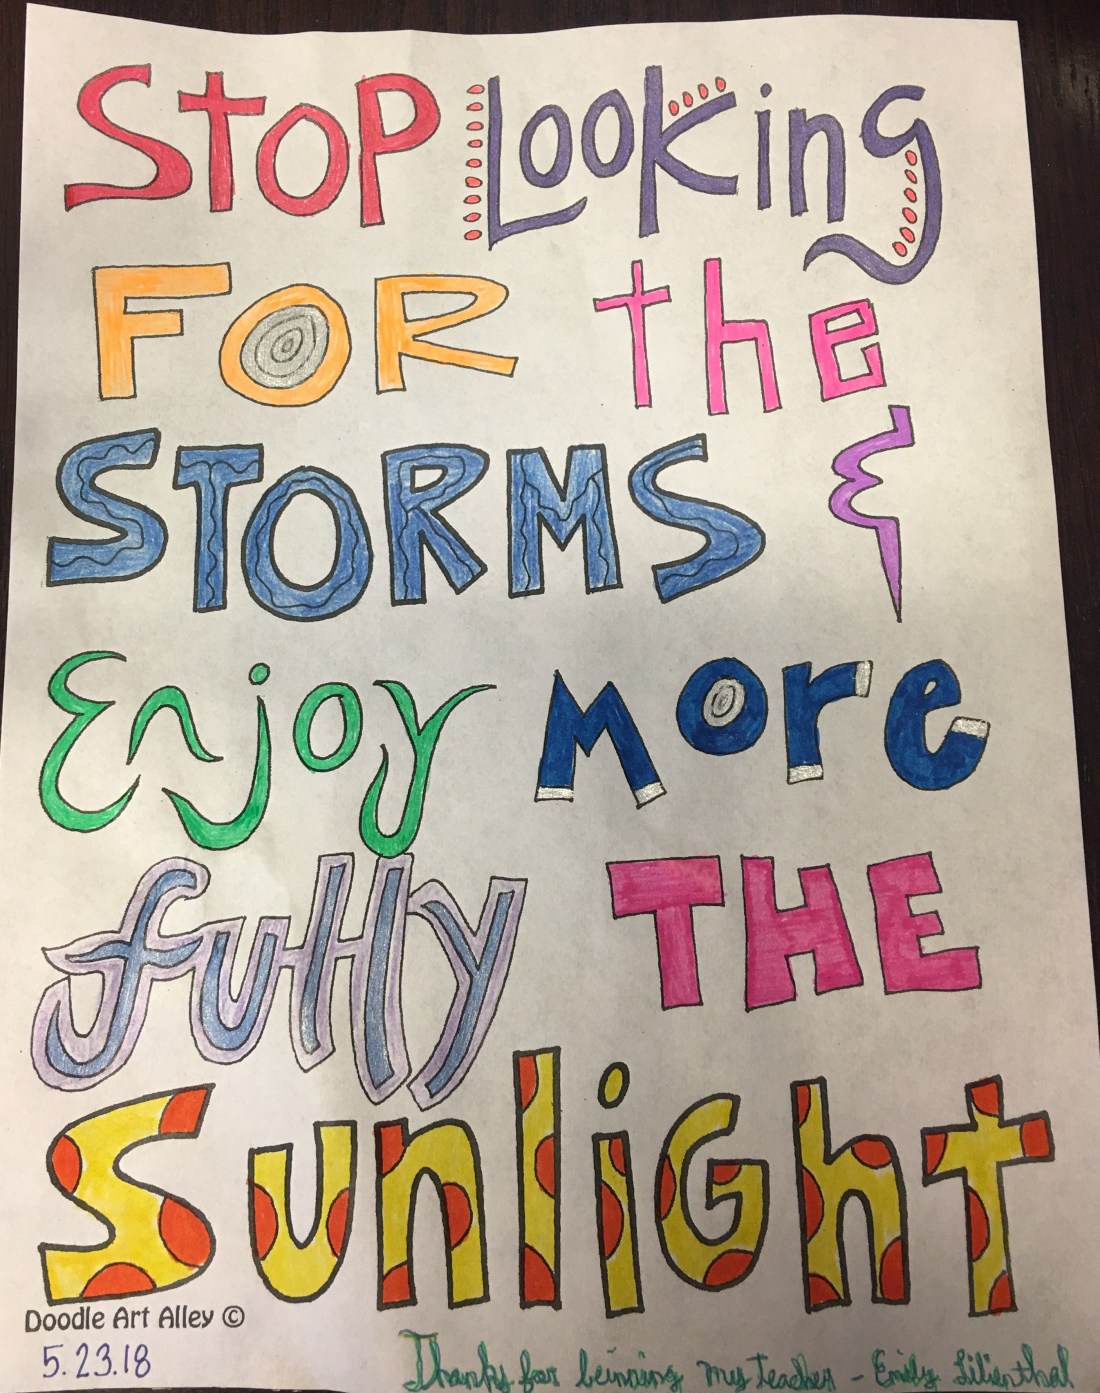 STOP LOOKing
FOR the
STORMS &
Enjoy more
fully THE
SunliGht
Doodle Art Alley ©
5.23.18
Thanks for beinning my teacher - Emily Lilienthal